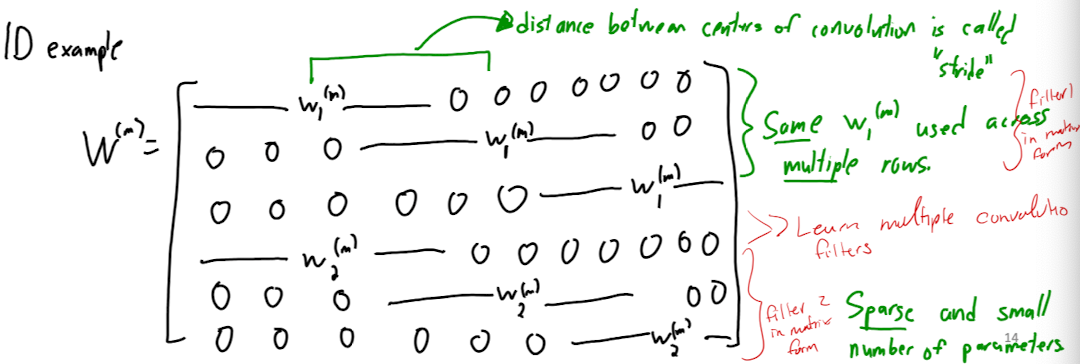 1D example
distance between centers of convolution is called
"stride"
W^(m) =
w_1^(m) 0 0 0 0 0 0 0
0 0 0 w_1^(m) 0 0
0 0 0 0 0 0 w_1^(m)
w_2^(m) 0 0 0 0 0 0 0
0 0 0 w_2^(m) 0 0
0 0 0 0 0 0 w_2^(m)
Same w_1^(m) used across
multiple rows.
filter 1
in matrix
form
Learn multiple convolutio
filters
filter 2
in matrix
form
Sparse and small
number of parameters
14